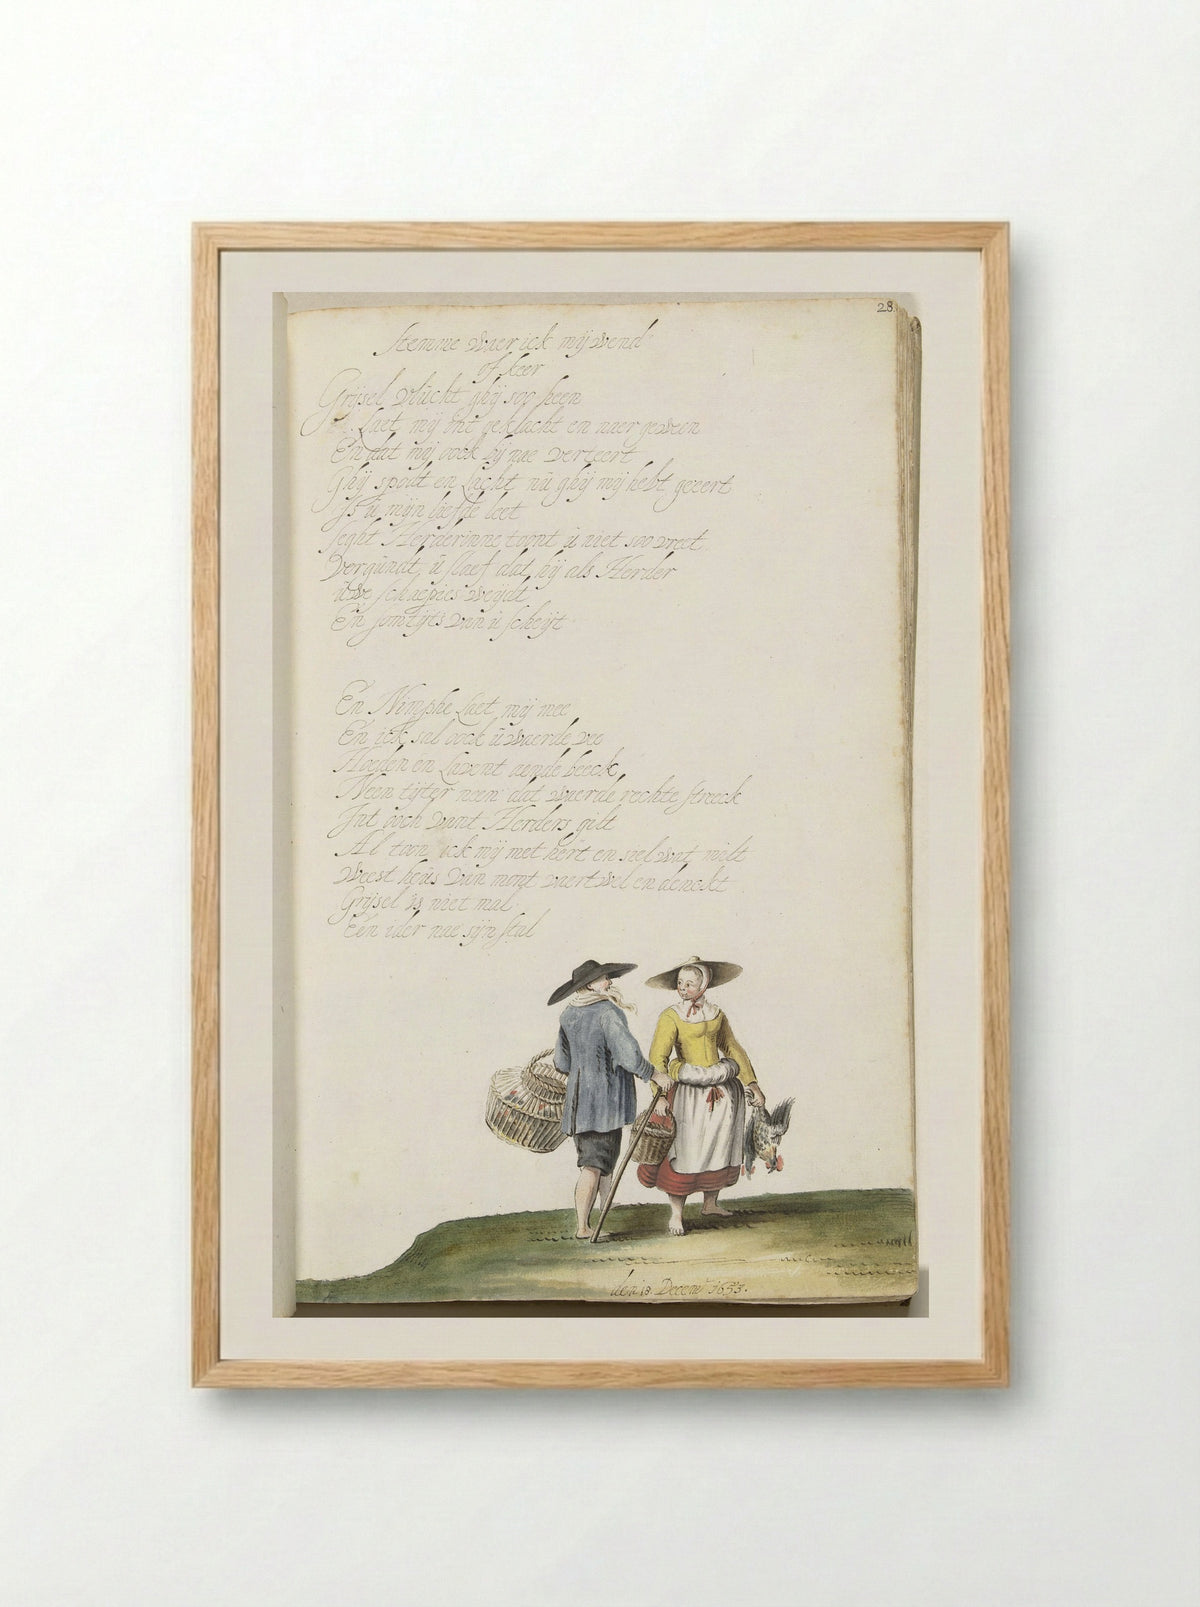 28
Stemme Waer ick mij wend
of keer
Grijsel vlücht ghij soo heen
Laet mij int geklacht en naer geween
En dat mij oock bij nae verteert
Ghij spodt en Lacht nü ghij mij hebt geeert
Is ü mijn liefde leet
seght Herderinne toont ü niet soo vreet
Vergündt ü slaef dat hij als Herder
üwe schaepies weydt
En somtijts van ü scheijt
En Nimphe Laet mij mee
En ick sal oock ü waerde vee
Hoeden en Lavent aende beeck
Neen tijter neen dat waerde rechte streeck
Int ooch vant Herders gilt
Al toon ick mij met hert en siel wat milt
Weest heüs van mont vaert wel en denckt
Grijsel is niet mal
Een ider nae sijn stal
den 18 Decem 1653.